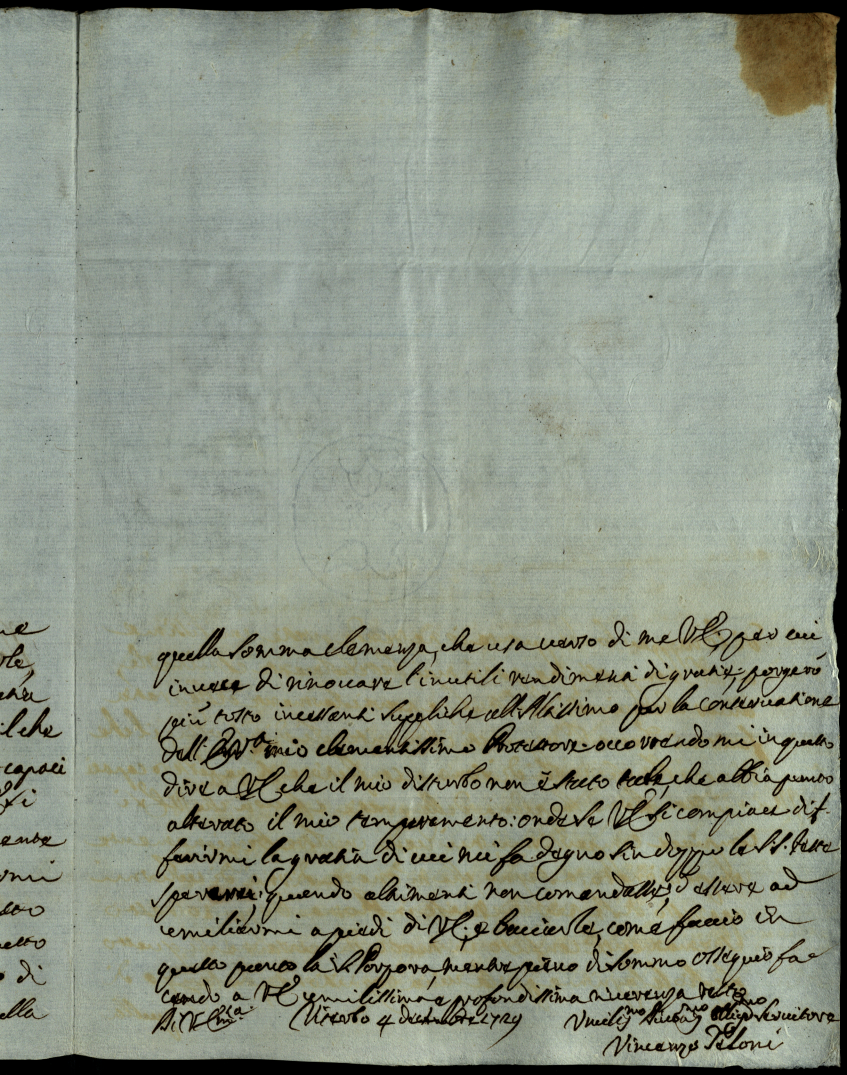 ne
ole,
il che
capaci
si
mente
rmi
sto
petto
o di
ella
quella somma clemenza, che usa verso di me VE; per cui
invece di rinovare l'inutili rendimenti di gratie, porgerò
più tosto incessanti suppliche all'Altissimo per la conservatione
dell' mio clementissimo Protettore. occorrendomi in questo
dire a VE che il mio disturbo non è stato tale, che abbia punto
alterato il mio temperamento: onde se VE si compiace dif-
ferirmi la gratia di cui mi fa degno sin doppo le S.S. feste
sperarei, quando altrimenti non comandasse, d'essere ad
umiliarmi a piedi di VE, e bacciarle, come faccio in
questo punto la S. Porpora, mentre pieno di sommo ossequio fa-
cendo a VE umilissima, e profondissima riverenza resto
Di VE Viterbo 4 decembre 1729 Umilis.mo Devot.mo Servitore
Vincenzo